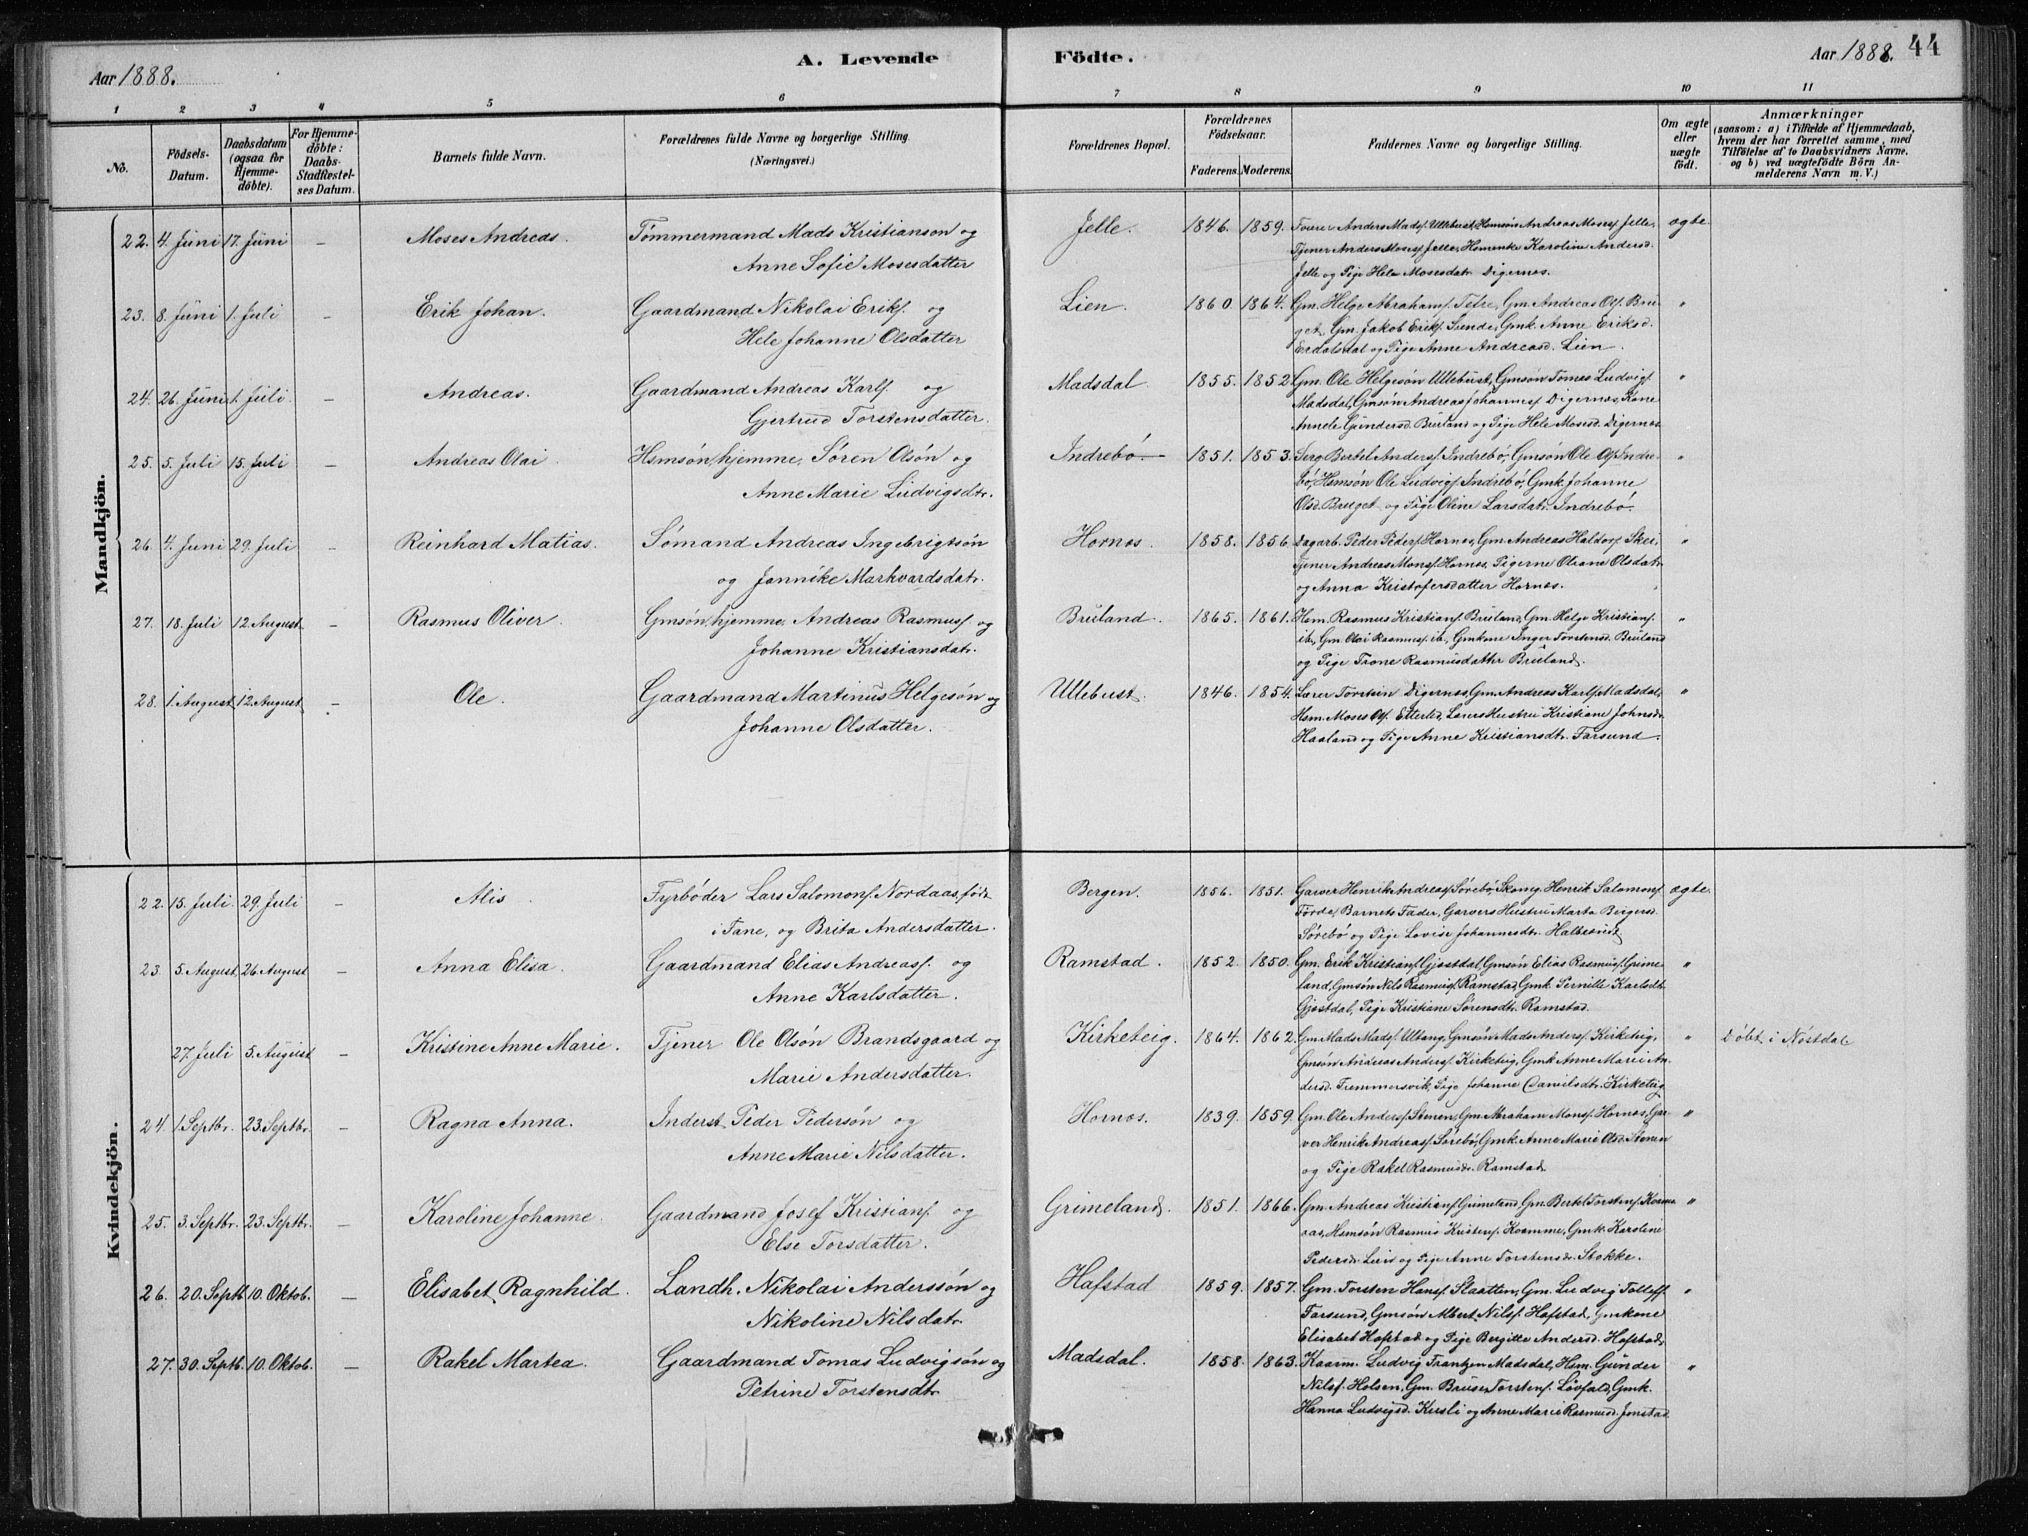 Aar 1888.
A. Levende
Födte.
Aar 1888.
44
1 2 3 4 5 6 7 8 9 10 11
No.
Födsels-Datum.
Daabsdatum (ogsaa for Hjemme-döbte).
For Hjemme-döbte: Daabs-Stadfæstel-ses Datum.
Barnets fulde Navn.
Forældrenes fulde Navne og borgerlige Stilling. (Næringsvei.)
Forældrenes Bopæl.
Forældrenes Födselsaar.
Faderens. Moderens.
Faddernes Navne og borgerlige Stilling.
Om ægte eller uægte födt.
Anmærkninger
(saasom: a) i Tilfælde af Hjemmedaab, hvem der har forrettet samme, med Tilföielse af to Daabsvidners Navne, og b) ved uægtefödte Börn An-melderens Navn m. V.)
Mandkjön.
22. 4. Juni 17. Juni – Moses Andreas. Tömmermand Mads Kristianson og
Anne Sofie Mosesdatter
Jelle. 1846. 1859. Anders Madsf. Ullebust, Hsmsön Andreas Mosesf. Jelle, ægte.
Tjener Anders Mosesf. Jelle, Karoline Andersd.
Jelle og Pige Hele Mosesdatr. Digernes.
23. 8. Juni 1. Juli – Erik Johan. Gaardmand Nikolai Eriksf. og
Hele Johanne Olsdatter
Lien. 1860. 1864. Gm. Helge Abrahamsf. Tefre, Gm. Andreas Olsf. Bru-
get, Gm. Jakob Eriksf. Sunde, Gmk. Anne Eriksd.
Erdalsdal og Pige Anne Andreasd. Lien.
24. 26. Juni 1. Juli – Andreas. Gaardmand Andreas Karlsf. og
Gjertrud Torstensdatter.
Madsdal. 1855. 1852. Gm. Ole Helgesön Ullebust, Gmsön Tomas Ludvigsf.
Madsdal, Gmsön Andreas Johannesf. Digernes, Kone
Annele Gundersd. Bruland og Pige Hele Mosesd. Digernes
25. 5. Juli 15. Juli – Andreas Olai Hsmsön, hjemme, Sören Olsön og
Anne Marie Ludvigsdtr.
Indrebö. 1851. 1853. Serg. Bertel Andersf. Indrebö, Gmsön Ole Olsf. Indre-
bö, Hsmsön Ole Ludvigsf. Indrebö, Gmk. Johanne
Olsd. Bruget og Pige Oline Larsdatr. Indrebö.
26. 4. Juni 29. Juli – Reinhard Matias. Sömand Andreas Ingebrigtsön
og Jannike Markvardsdatr.
Hornes. 1858. 1856. Dagarb. Peder Pedersf. Hornes, Gm. Andreas Haldorsf. Skei,
Tjener Andreas Monsf. Hornes, Pigerne Oliane Olsdatr.
og Anna Kristofersdatter Hornes.
27. 18. Juli 12. August – Rasmus Oliver. Gmsön, hjemme, Andreas Rasmusf. og
Johanne Kristiansdatr.
Bruland. 1865. 1861. Hsm. Rasmus Kristiansf. Bruland, Gm. Helge Kristiansf.
ib., Gm. Olai Rasmusf. ib., Gmkone Inger Torstensd. Bruland
og Pige Trone Rasmusdatter Bruland.
28. 1. August 12. August – Ole. Gaardmand Martinus Helgesön og
Johanne Olsdatter.
Ullebust. 1846. 1854. Lærer Torstein Digernes, Gm. Andreas Karlsf. Madsdal,
Hsm. Moses Olsf. Etterlid, Lærers Hustru Kristiane Johnsdr.
Haaland og Pige Anne Kristiansdtr. Farsund.
Kvindekjön.
22. 15. Juli 29. Juli – Alis Fyrböder Lars Salomonsf. Nordaas, född
i Tane, og Brita Andersdatter.
Bergen. 1856. 1851. Garver Henrik Andreasf. Sörebö, Skomg. Henrik Salomonsf. ægte.
Förde, Barnets Fader, Garvers Hustru Marta Beigersd.
Sörebö og Pige Lovise Johannesdtr. Halbrendt
23. 5. August 26. August – Anna Elisa. Gaardmand Elias Andreasf. og
Anne Karlsdatter.
Ramstad. 1852. 1850. Gm. Erik Kristiansf. Gjesdal, Gmsön Elias Rasmusf. Grime-
land, Gmsön Nils Rasmusf. Ramstad, Gmk. Pernille Karlsdtr.
Gjesdal, Pige Kristiane Sörensdtr. Ramstad.
27. Juli 5. August – Kristine Anne Marie. Tjener Ole Olsön Brandsgaard og
Marie Andersdatter.
Kirketeig. 1864. 1862. Gm. Mads Madsf. Ultang, Gmsön Mads Andersf. Kirketeig, Döbt i Nöstdal
Gmsön Andreas Andersf. Kirketeig, Gmk. Anne Marie An-
dersd. Tremmersvik, Pige Johanne Danielsdtr. Kirketeig
24. 1. Septbr. 23. Septbr. – Ragna Anna. Inderst Peder Pedersön og
Anne Marie Nilsdatter.
Hornes. 1839. 1859. Gm. Ole Andersf. Stenen, Gm. Abraham Monsf. Hornes, Gar-
ver Henrik Andreasf. Sörebö, Gmk. Anne Marie Olsd. Stenen
og Pige Rakel Rasmusdr. Ramstad
25. 3. Septbr. 23. Septbr. – Karoline Johanne. Gaardmand Josef Kristiansf. og
Else Torsdatter.
Grimeland. 1851. 1866. Gm. Andreas Kristiansf. Grimeland, Gm. Bertel Torstensf.
Hsmsön Rasmus Kristensf. Gmk. Karoline
Pedersd. Lien og Pige Anne Torstensdr. Stokke.
26. 20. Septb. 10. Oktob. – Elisabet Ragnhild. Landh. Nikolai Anderssön og
Nikoline Nilsdatr.
Hafstad 1859. 1857. Gm. Torsten Hansf. Slaatten, Gm. Ludvig Tollefsf.
Farsund, Gmsön Albert Nilsf. Hafstad, Gmkone
Elisabet Hafstad og Pige Bergitte Andersd. Hafstad,
27. 30. Septb. 10. Oktob. – Rakel Martea. Gaardmand Tomas Ludvigsön og
Petrine Torstensdtr.
Madsdal. 1858. 1863. Kaarm. Ludvig Frantzen Madsdal, Hsm. Gunder
Nilsf. Holsen, Gm. Bruse Torstensf. Lövfald, Gmk.
Hanna Ludvigsd. Kusli og Anne Marie Rasmusd. Jonstad